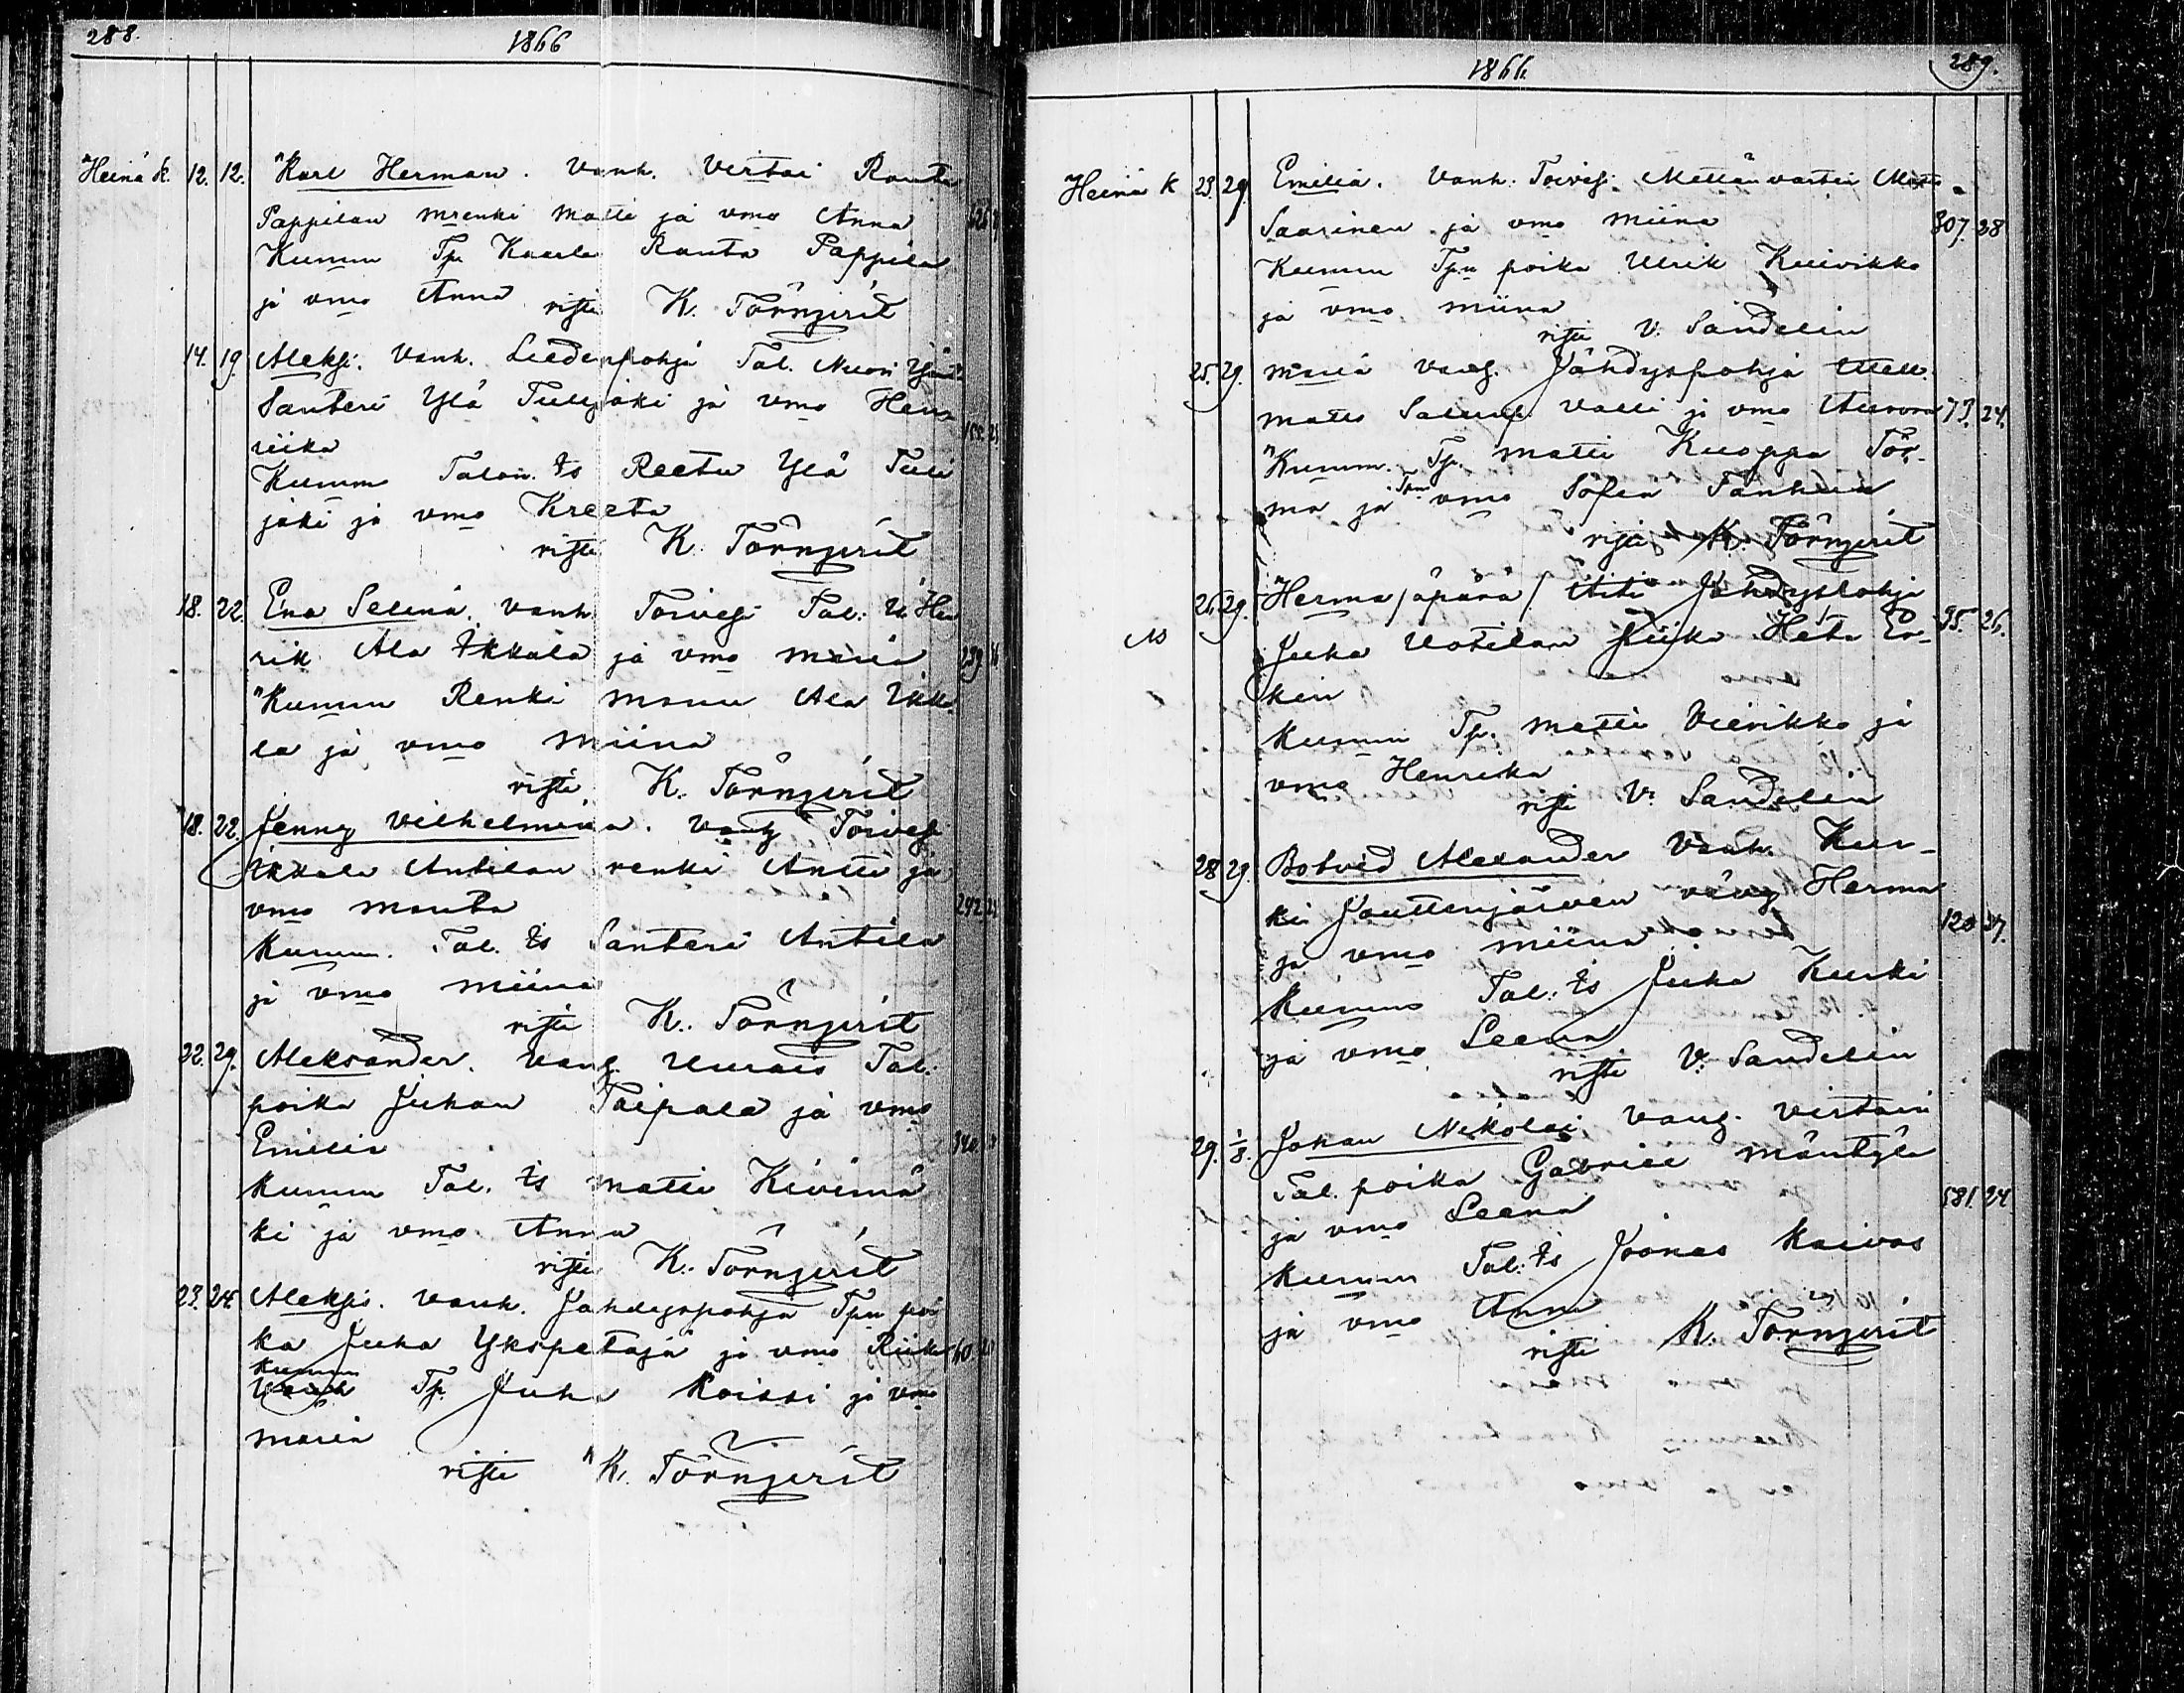 288.
1866
Heinä k. 12. 12. Karl Herman. Vanh. Virtai Ranta
Pappilan mrenki Matti ja vmo Anna
Kumm Tp. Kaarle Ranta Pappila
ja vmo Anna risti K. Törnqvist
14. 19 Aleksi. Vanh. Liedenpohja Tal. Nuori
Santeri Ylä Tulijoki ja vmo Hen
riika
Kumm Talon. Is Reetu Ylä Tuli
joki ja vmo Kreeta
risti K. Törnqvist
18. 22. Eva Selina. Vanh. Toivesi Tal. Hen
rik Ala Ikkala ja vmo Maria 239
Kumm Renki Manu Ala Ikka
la ja vmo Miina
risti K. Törnqvist
18. 22. Jenny Vilhelmina. Vanh Toivesi
Ikkala Antilan renki Antti ja
vmo Manta 242
Kumm. Tal. Is Santeri Antila
ja vmo Miina
risti K. Törnqvist
22. 29. Aleksander. Vanh. Uurais Tal.
poika Juhan Taipale ja vmo
Emilia 340
Kumm Tal. Is Matti Kivimä
ki ja vmo Anna
risti K. Törnqvist
23. 24. Aleksis. Vanh. Jähdyspohja Tpn poi
ka Juha Ykspetäjä ja vmo Riika 60
Kumm
Tp. Juha Koissi ja vmo
Maria
risti K. Törnqvist
1866
289.
Heinä K 23. 29. Emilia. Vanh. Toivesi. Mettän vartia Matti
Saarinen ja vmo Miina 307. 28
Kumm Tpn poika Ulrik Kuivikko
ja vmo Miina
risti V. Sandelin
25. 29. Maria vanh. Jähdyspohja
Matts Valli ja vmo Aurora 73. 24.
Kumm. Tp. Matti Kuoppa Tör-
mä ja Tpn vmo Sofia Tanhua
risti K. Törnqvist
26. 29. Herma /äpärä/ Äiti Jähdyspohja
Juha Uotilan Piika Heta Er- 95. 26.
kin
Kumm Tp. Matti Viivikko ja
vmo Henrika
risti V. Sandelin
28 29. Botvid Alexander Vanh. Kur-
ki Jauttenjärven vävy Herma
ja vmo Miina 120 37.
Kumm Tal. Is Juha Kurki
ja vmo Leena
risti V. Sandelin
29. 1/8. Johan Nikolai. Vanh. Virtain
Tal. poika Gabriel Mäntylä
ja vmo Leena 581 24
Kumm Tal. Is Joonas Kaivos
ja vmo Anna
risti K. Törnqvist